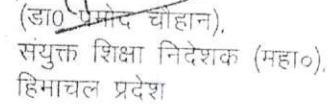 (डा0 प्रमोद चौहान),
संयुक्त शिक्षा निदेशक (महा०),
हिमाचल प्रदेश